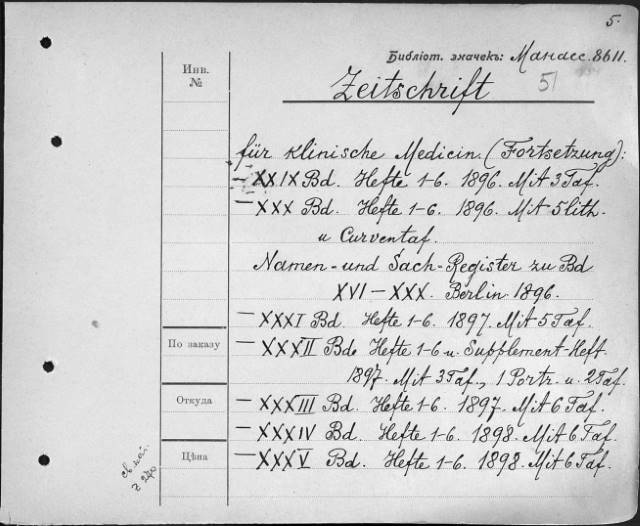 5.
Библіот. значекъ: Манасс. 8611.
Инв.
№
Zeitschrift 51
für klinische Medicin. (Fortsetzung):
— XXIX Bd. Hefte 1-6. 1896. Mit 3 Taf.
— XXX Bd. Hefte 1-6. 1896. Mit 5 lith.
u Curventaf.
Namen- und Sach-Register zu Bd
XVI — XXX. Berlin 1896.
— XXXI Bd. Hefte 1-6. 1897. Mit 5 Taf.
По заказу
— XXXII Bd. Hefte 1-6 u. Supplement-Heft
1897. Mit 3 Taf., 1 Portr. u. 2 Taf.
Откуда
— XXXIII Bd. Hefte 1-6. 1897. Mit 6 Taf.
— XXXIV Bd. Hefte 1-6. 1898. Mit 6 Taf.
Цѣна
— XXXV Bd. Hefte 1-6. 1898. Mit 6 Taf.